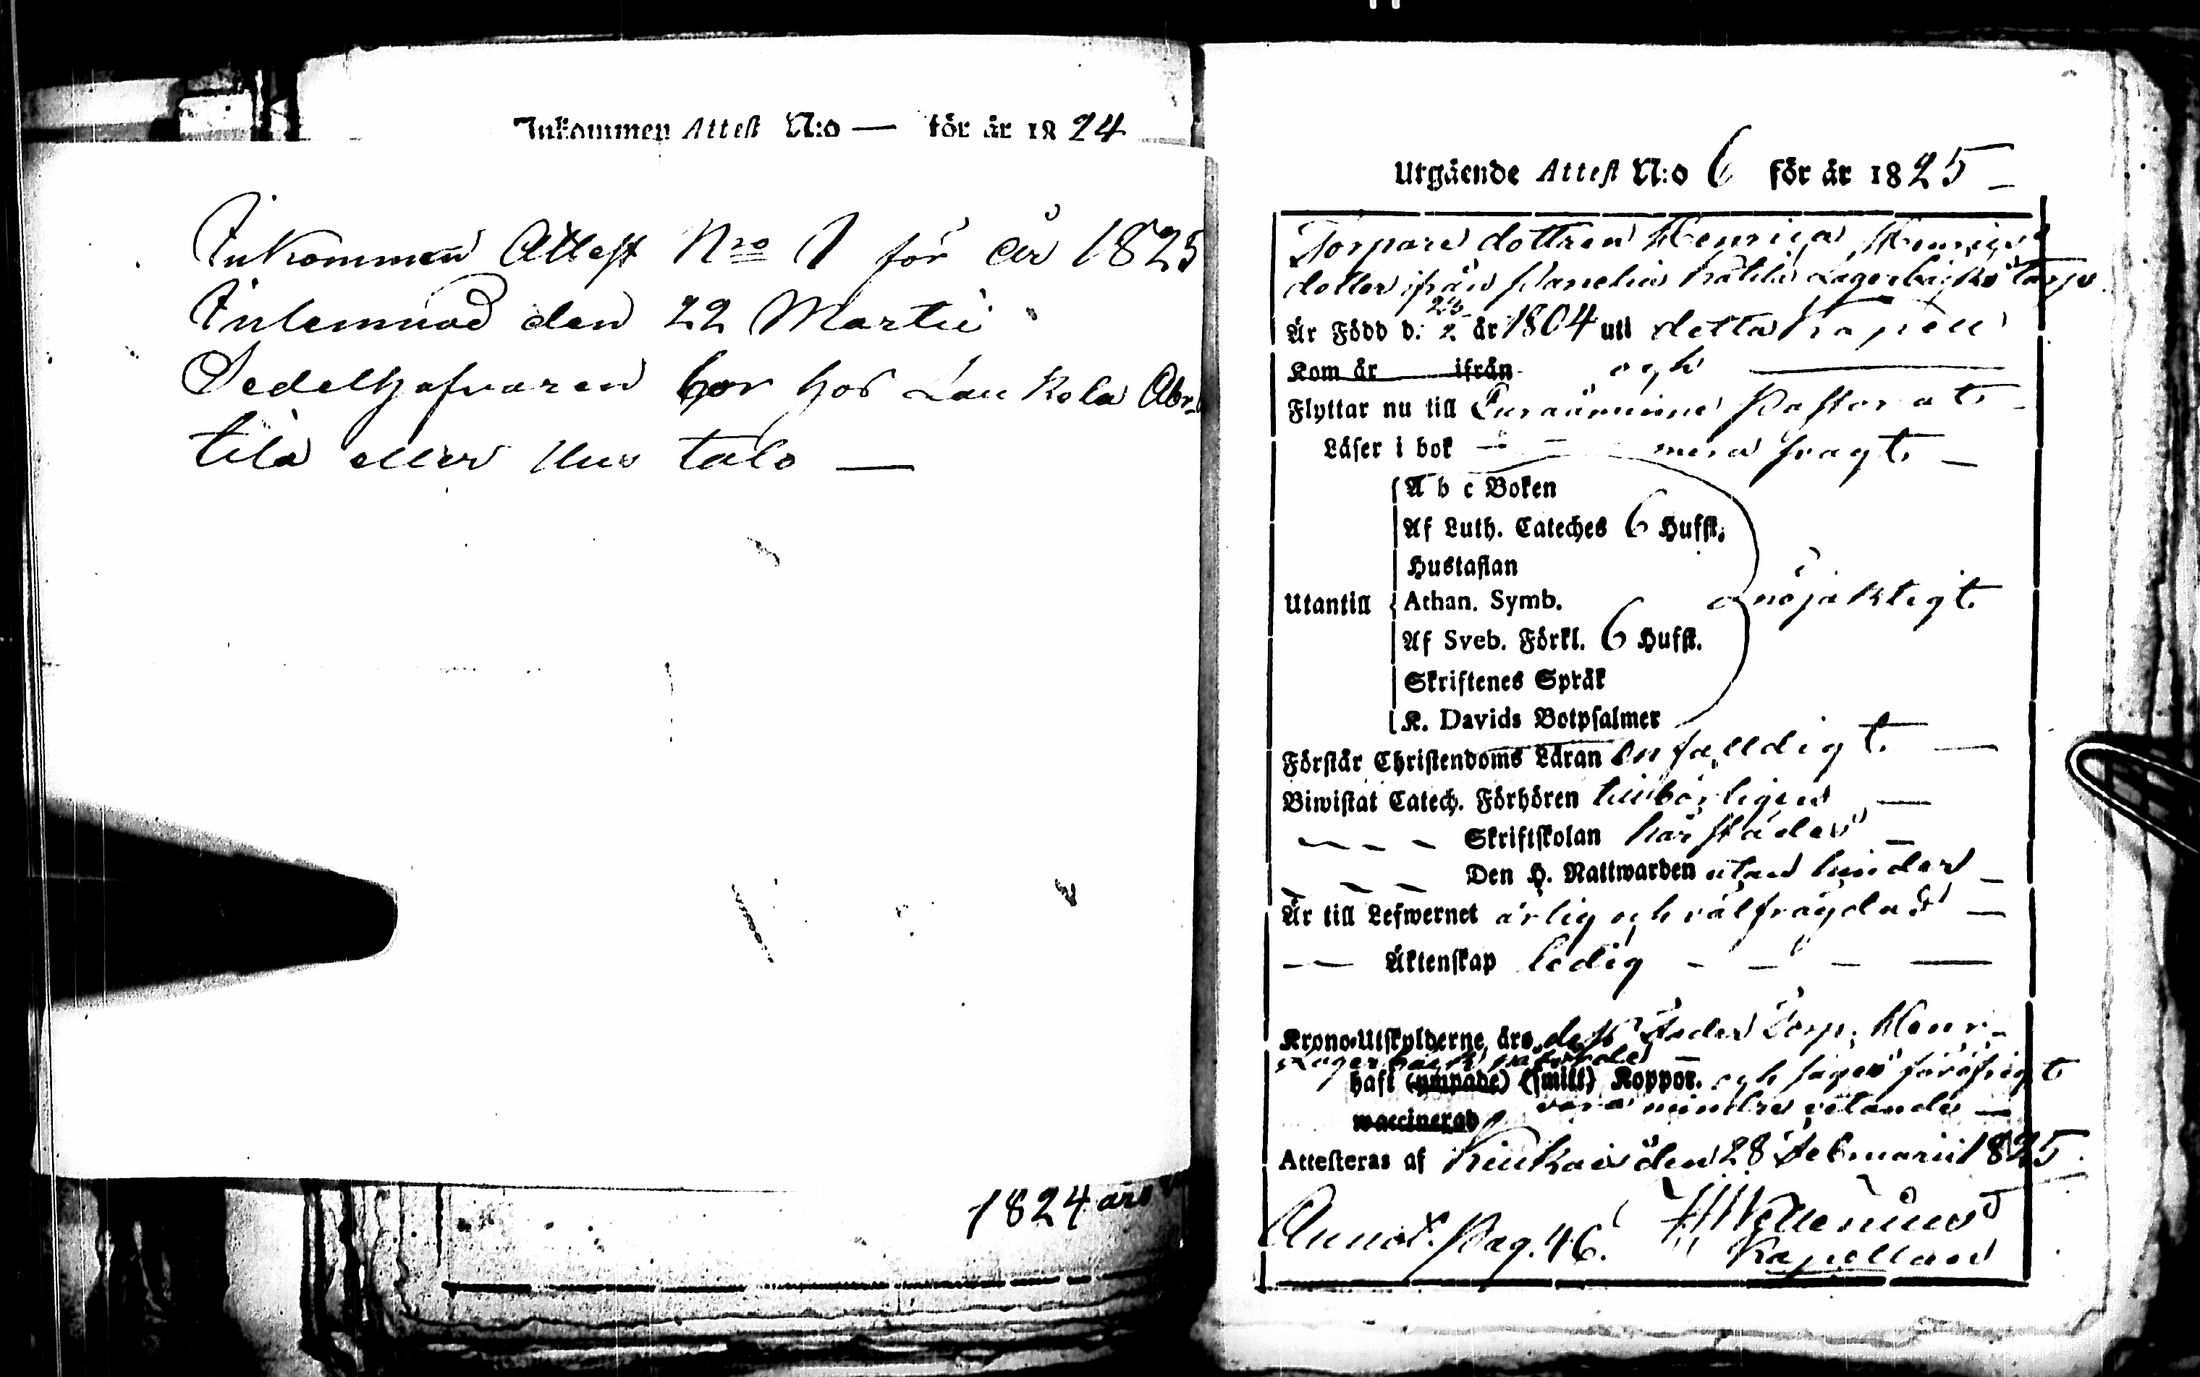 Inkommen Attest N:o — för år 1824
Inkommen Attest N:ro 1 för år 1825
Inlemnad den 22 Martii
Sedelhafvaren bor hos Laukola Abr
tila eller Uus talo —
1824 års
Utgående Attest N:o 6 för år 1825 —
Torpare dottren Henrica Henrics
dotter ifrån Panelia Lagerbäcks torp
Är Född d. 23/2 år 1804 uti detta Kapell
Kom år ifrån och —
Flyttar nu till Euraåminne Pastorat —
Läser i bok - - försvagt —
A b c Boken
Af Luth. Cateches 6 Hufst.
Hustaflan
Utantill Athan. Symb. nöjaktigt
Af Sveb. Förkl. 6 Hufst.
Skriftenes Språk
K. Davids Botpsalmer
Förstår Christendoms Läran enfalldigt —
Biwistat Catech. Förhören tillbörligen —
— - - - Skriftskolan härstädes —
- - - Den H. Nattwarden utan hinder —
Är till Lefwernet ärlig och välfrägdad —
— Äktenskap ledig - - - —
Krono-Utskylderne, års, dess Fader Torp. Henr.
Lagerbäck
haft (ympade) (smitt) Koppor. och säges föröfrigt
waccinerad vara mindre vetande —
Attesteras af Kiukais den 28 Februarii 1825.
Annot. Pag. 46.
Kapellan